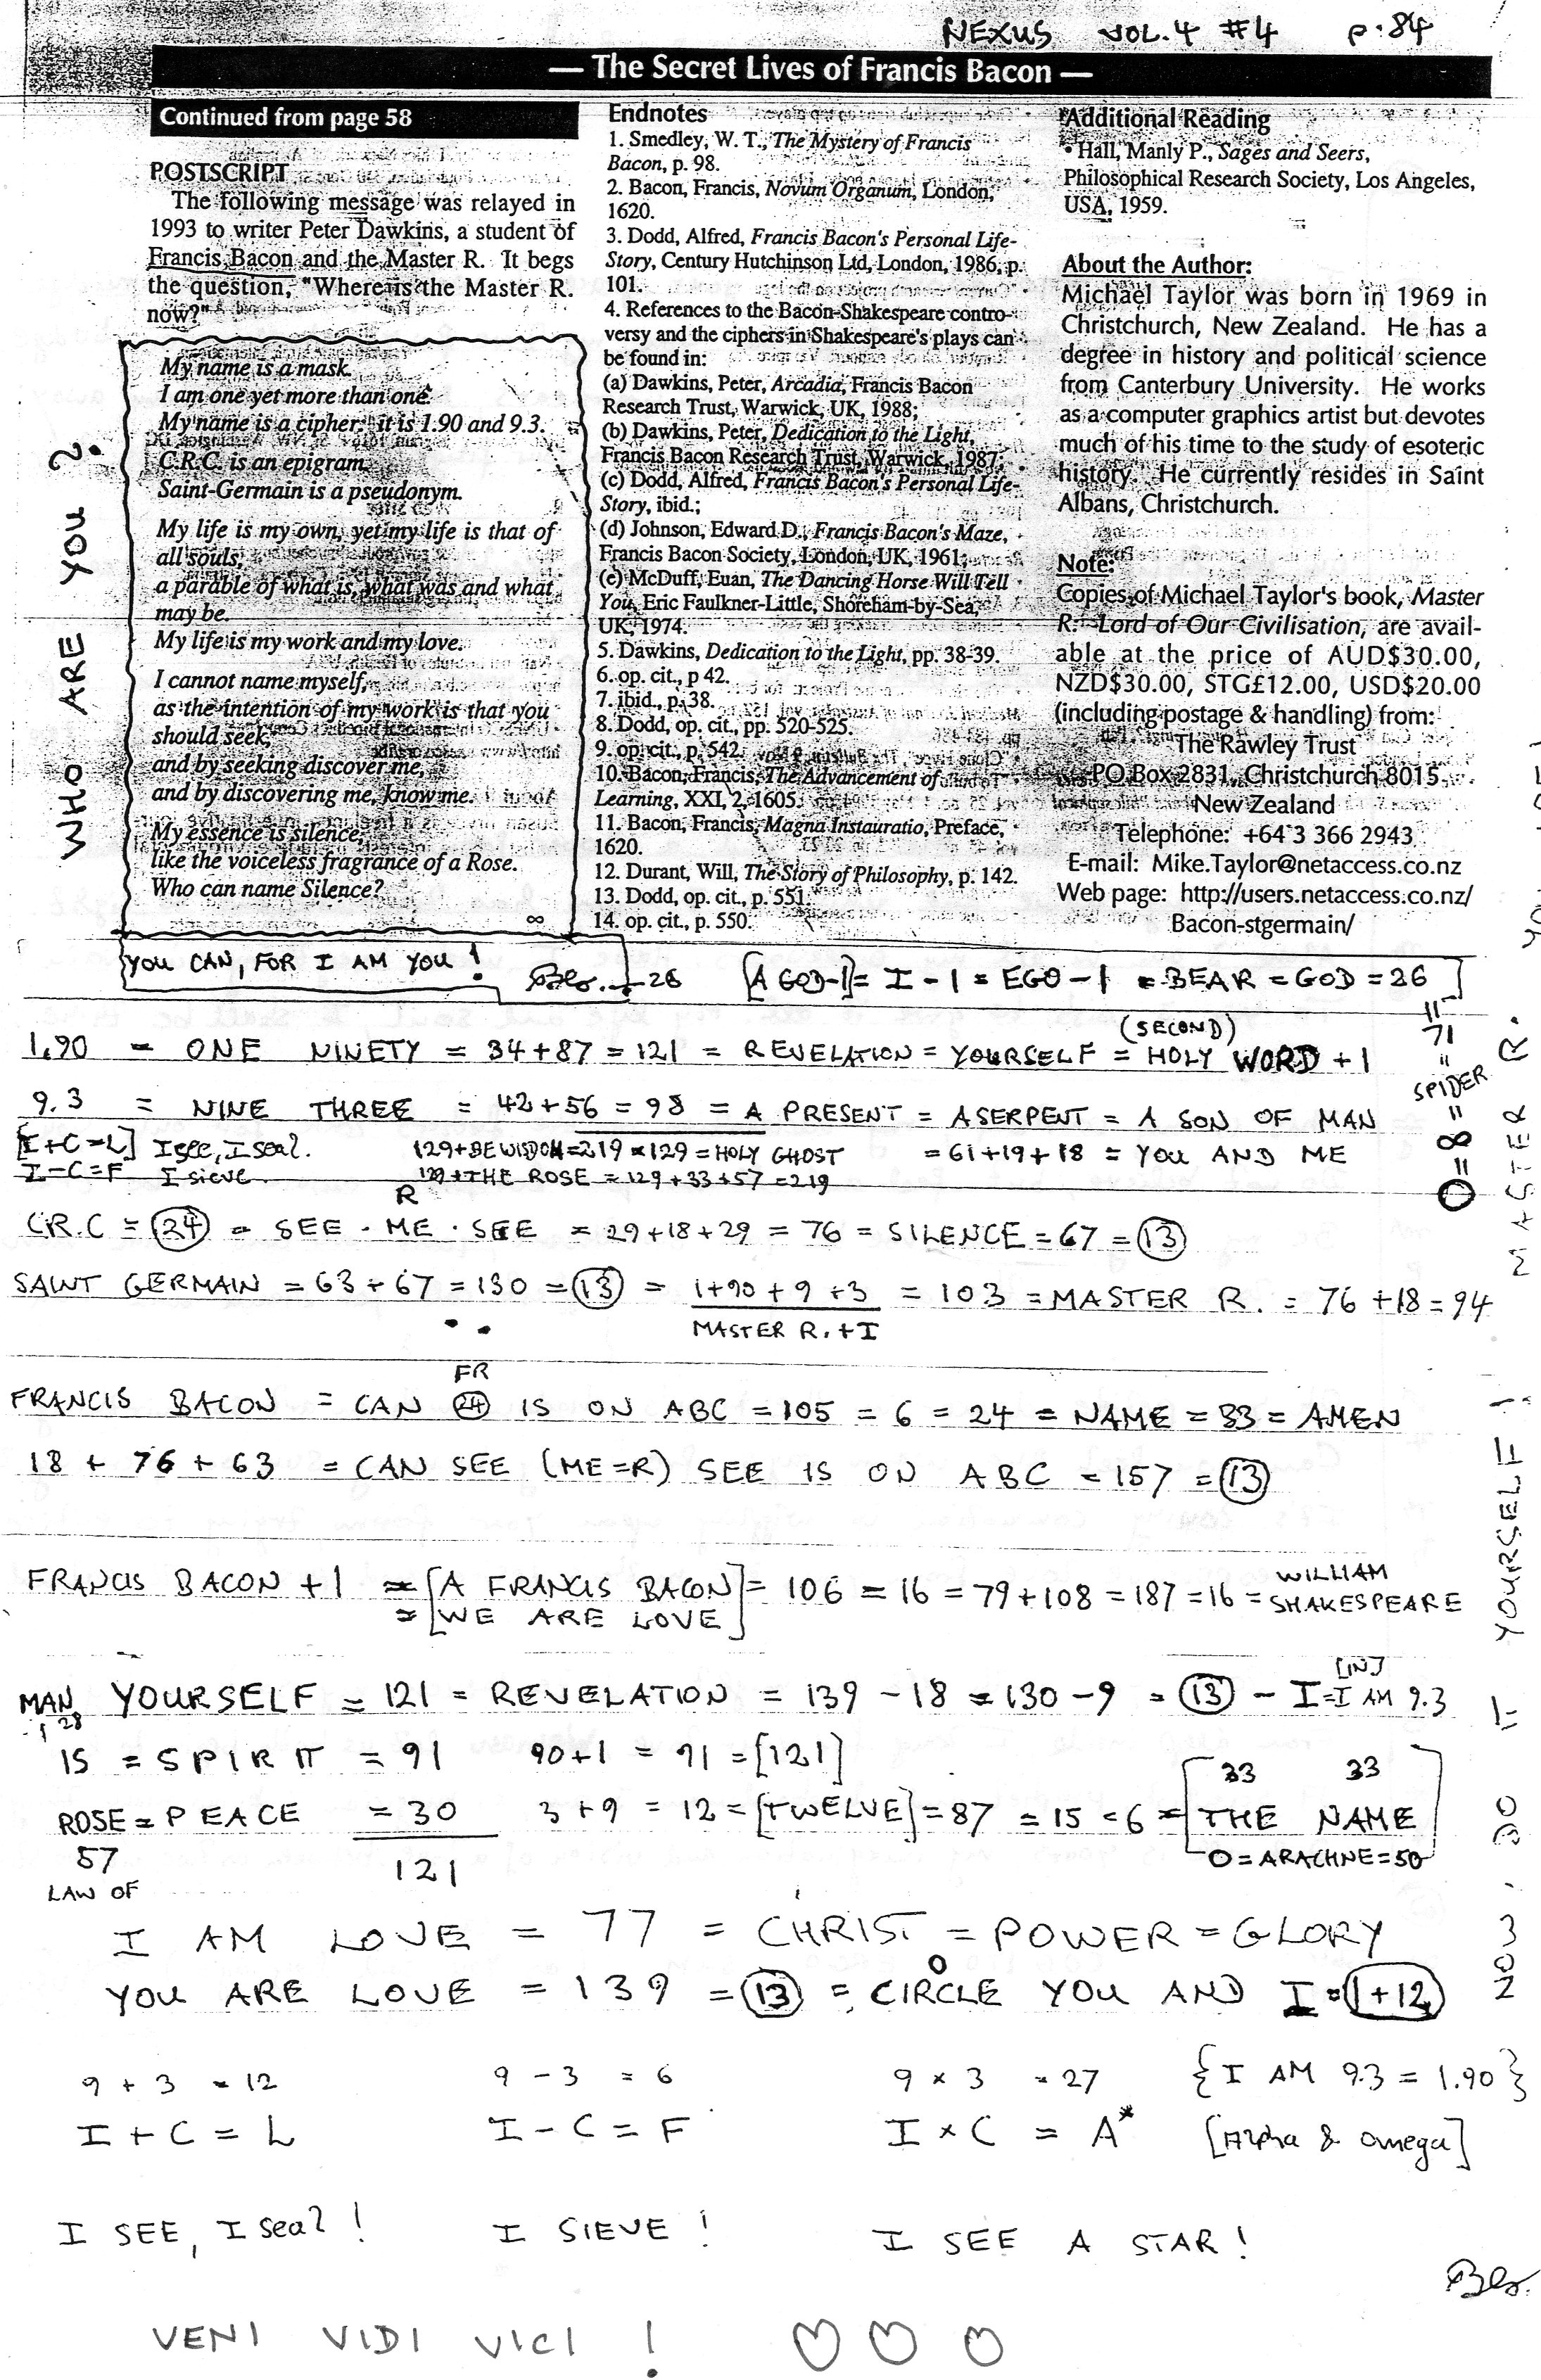 NEXUS VOL.4 #4 p.84
— The Secret Lives of Francis Bacon —
Continued from page 58
POSTSCRIPT
The following message was relayed in
1993 to writer Peter Dawkins, a student of
Francis Bacon and the Master R. It begs
the question, "Where is the Master R.
now?"
My name is a mask.
I am one yet more than one.
My name is a cipher: it is 1.90 and 9.3.
C.R.C. is an epigram.
Saint-Germain is a pseudonym.
My life is my own, yet my life is that of
all souls,
a parable of what is, what was and what
may be.
My life is my work and my love.
I cannot name myself,
as the intention of my work is that you
should seek,
and by seeking discover me,
and by discovering me, know me.
My essence is silence,
like the voiceless fragrance of a Rose.
Who can name Silence?
∞
WHO ARE YOU?
Endnotes
1. Smedley, W. T., The Mystery of Francis
Bacon, p. 98.
2. Bacon, Francis, Novum Organum, London,
1620.
3. Dodd, Alfred, Francis Bacon's Personal Life-
Story, Century Hutchinson Ltd, London, 1986, p.
101.
4. References to the Bacon-Shakespeare contro-
versy and the ciphers in Shakespeare's plays can
be found in:
(a) Dawkins, Peter, Arcadia, Francis Bacon
Research Trust, Warwick, UK, 1988;
(b) Dawkins, Peter, Dedication to the Light,
Francis Bacon Research Trust, Warwick, 1987;
(c) Dodd, Alfred, Francis Bacon's Personal Life-
Story, ibid.;
(d) Johnson, Edward D., Francis Bacon's Maze,
Francis Bacon Society, London, UK, 1961;
(e) McDuff, Euan, The Dancing Horse Will Tell
You, Eric Faulkner-Little, Shoreham-by-Sea,
UK, 1974.
5. Dawkins, Dedication to the Light, pp. 38-39.
6. op. cit., p 42.
7. ibid., p. 38.
8. Dodd, op. cit., pp. 520-525.
9. op. cit., p. 542.
10. Bacon, Francis, The Advancement of
Learning, XXI, 2, 1605.
11. Bacon, Francis, Magna Instauratio, Preface,
1620.
12. Durant, Will, The Story of Philosophy, p. 142.
13. Dodd, op. cit., p. 551.
14. op. cit., p. 550.
Additional Reading
• Hall, Manly P., Sages and Seers,
Philosophical Research Society, Los Angeles,
USA, 1959.
About the Author:
Michael Taylor was born in 1969 in
Christchurch, New Zealand. He has a
degree in history and political science
from Canterbury University. He works
as a computer graphics artist but devotes
much of his time to the study of esoteric
history. He currently resides in Saint
Albans, Christchurch.
Note:
Copies of Michael Taylor's book, Master
R.–Lord of Our Civilisation, are avail-
able at the price of AUD$30.00,
NZD$30.00, STG£12.00, USD$20.00
(including postage & handling) from:
The Rawley Trust
PO Box 2831, Christchurch 8015
New Zealand
Telephone: +64 3 366 2943
E-mail: Mike.Taylor@netaccess.co.nz
Web page: http://users.netaccess.co.nz/
Bacon-stgermain/
YOU CAN, FOR I AM YOU!
26 [A GOD-1] = I - 1 = EGO - 1 = BEAR = GOD = 26]
1.90 = ONE NINETY = 34+87 = 121 = REVELATION = YOURSELF = (SECOND) HOLY WORD + 1
9.3 = NINE THREE = 42+56 = 98 = A PRESENT = A SERPENT = A SON OF MAN
[I+C=L] I see, I seal. 129+BE WISDOM=219 = 129 = HOLY GHOST = 61+19+18 = YOU AND ME
I-C=F I sieve 129+THE ROSE = 129+33+57 = 219
0=8=∞ = SPIDER = 71 =
R
C.R.C = 24 = SEE · ME · SEE = 29+18+29 = 76 = SILENCE = 67 = 13
SAINT GERMAIN = 63+67 = 130 = 13 = 1+90+9+3 = 103 = MASTER R. = 76+18 = 94
MASTER R. + I
FR
FRANCIS BACON = CAN 24 IS ON ABC = 105 = 6 = 24 = NAME = 33 = AMEN
18 + 76 + 63 = CAN SEE (ME=R) SEE IS ON ABC = 157 = 13
FRANCIS BACON + 1 = [A FRANCIS BACON] = 106 = 16 = 79+108 = 187 = 16 = WILLIAM SHAKESPEARE
= [WE ARE LOVE]
MAN YOURSELF = 121 = REVELATION = 139 - 18 = 130 - 9 = 13 - I = I AM 9.3
[IN]
-1 28
IS = SPIRIT = 91 90+1 = 91 = [121]
33 33
ROSE = PEACE = 30 3+9 = 12 = [TWELVE] = 87 = 15 = 6 = [THE NAME
57 121 O = ARACHNE = 50]
LAW OF
I AM LOVE = 77 = CHRIST = POWER = GLORY
YOU ARE LOVE = 139 = 13 = CIRCLE YOU AND I = 1+12
O
9 + 3 = 12 9 - 3 = 6 9 × 3 = 27 {I AM 9.3 = 1.90}
I + C = L I - C = F I × C = A* [Alpha & Omega]
I SEE, I seal! I SIEVE! I SEE A STAR!
VENI VIDI VICI !
MASTER R.
NOW, DO YOURSELF!